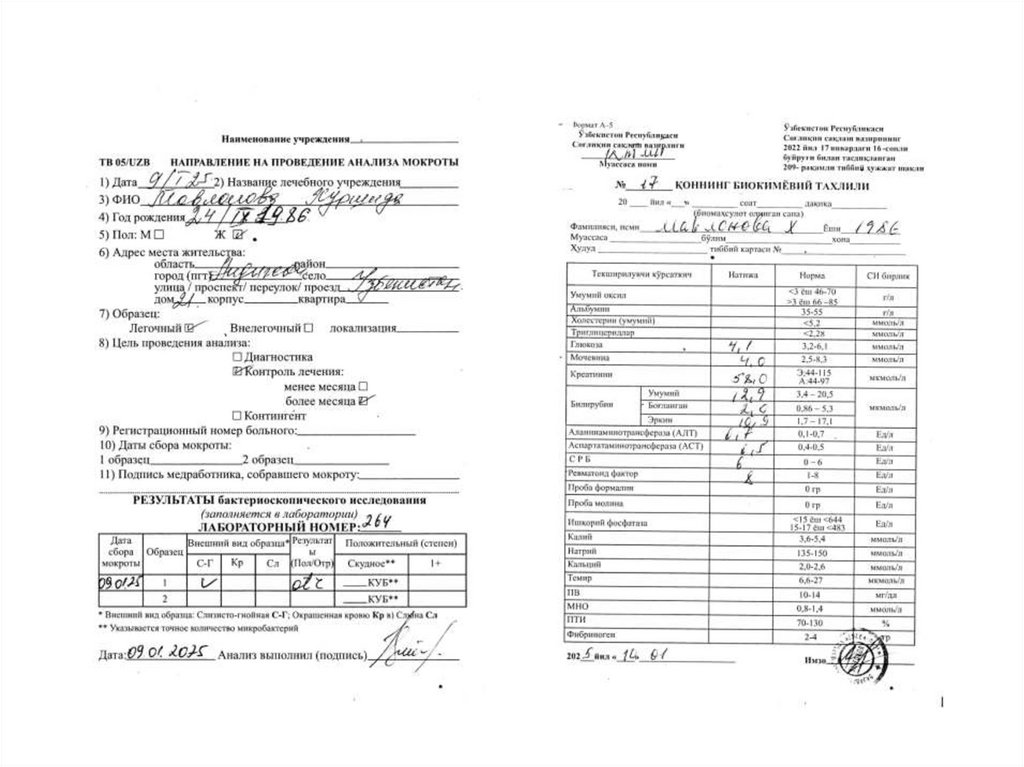 Наименование учреждения
ТВ 05/UZB НАПРАВЛЕНИЕ НА ПРОВЕДЕНИЕ АНАЛИЗА МОКРОТЫ
1) Дата 9/I 25 2) Название лечебного учреждения
3) ФИО Мавлонова Хуршида
4) Год рождения 24/IX 1986
5) Пол: М Ж
6) Адрес места жительства:
область район
город (пгт) село
улица / проспект/ переулок/ проезд Узбекистан
дом 21 корпус квартира
7) Образец:
Легочный Внелегочный локализация
8) Цель проведения анализа:
Диагностика
Контроль лечения:
менее месяца
более месяца
Контингент
9) Регистрационный номер больного:
10) Даты сбора мокроты:
1 образец 2 образец
11) Подпись медработника, собравшего мокроту:
РЕЗУЛЬТАТЫ бактериоскопического исследования
(заполняется в лаборатории)
ЛАБОРАТОРНЫЙ НОМЕР: 264
Дата сбора мокроты Образец Внешний вид образца* Результаты (Пол/Отр) Положительный (степен)
С-Г Кр Сл Скудное** 1+
09.01.25 1 отс КУБ**
2 КУБ**
* Внешний вид образца: Слизисто-гнойная С-Г; Окрашенная кровю Кр в) Слюна Сл
** Указывается точное количество микробактерий
Дата: 09.01.2025 Анализ выполнил (подпись)
Формат А-5
Ўзбекистон Республикаси
Соғлиқни сақлаш вазирлиги
Муассаса номи
Ўзбекистон Республикаси
Соғлиқни сақлаш вазирининг
2022 йил 17 январдаги 16-сонли
буйруғи билан тасдиқланган
209- рақамли тиббий ҳужжат шакли
№ 17 ҚОННИНГ БИОКИМЁВИЙ ТАХЛИЛИ
20 йил « » соат дақиқа
(биомаҳсулот олинган сана)
Фамилияси, исми Мавлонова Х Ёши 1986
Муассаса бўлим хона
Ҳудуд тиббий картаси №
Текширилувчи кўрсаткич Натижа Норма СИ бирлик
Умумий оқсил <3 ёш 46-70 >3 ёш 66 –85 г/л
Альбумин 35-55 г/л
Холестерин (умумий) <5,2 ммоль/л
Триглицеридлар <2,28 ммоль/л
Глюкоза 4,1 3,2-6,1 ммоль/л
Мочевина 4,0 2,5-8,3 ммоль/л
Креатинин 58,0 Э;44-115 А:44-97 мкмоль/л
Билирубин Умумий 12,9 3,4 – 20,5 мкмоль/л
Боғланган 2,0 0,86 – 5,3
Эркин 10,9 1,7 – 17,1
Аланинаминотрансфераза (АЛТ) 0,1-0,7 Ед/л
Аспартатаминотрансфераза (АСТ) 0,4-0,5 Ед/л
С Р Б 6 0 – 6 Ед/л
Ревматоид фактор 8 1-8 Ед/л
Проба формалин 0 гр Ед/л
Проба молина 0 гр Ед/л
Ишқорий фосфатаза <15 ёш <644 15-17 ёш <483 Ед/л
Калий 3,6-5,4 ммоль/л
Натрий 135-150 ммоль/л
Кальций 2,0-2,6 ммоль/л
Темир 6,6-27 мкмоль/л
ПВ 10-14 мг/дл
МНО 0,8-1,4 ммоль/л
ПТИ 70-130 %
Фибриноген 2-4 гр
2025 йил « 14 01
Имзо